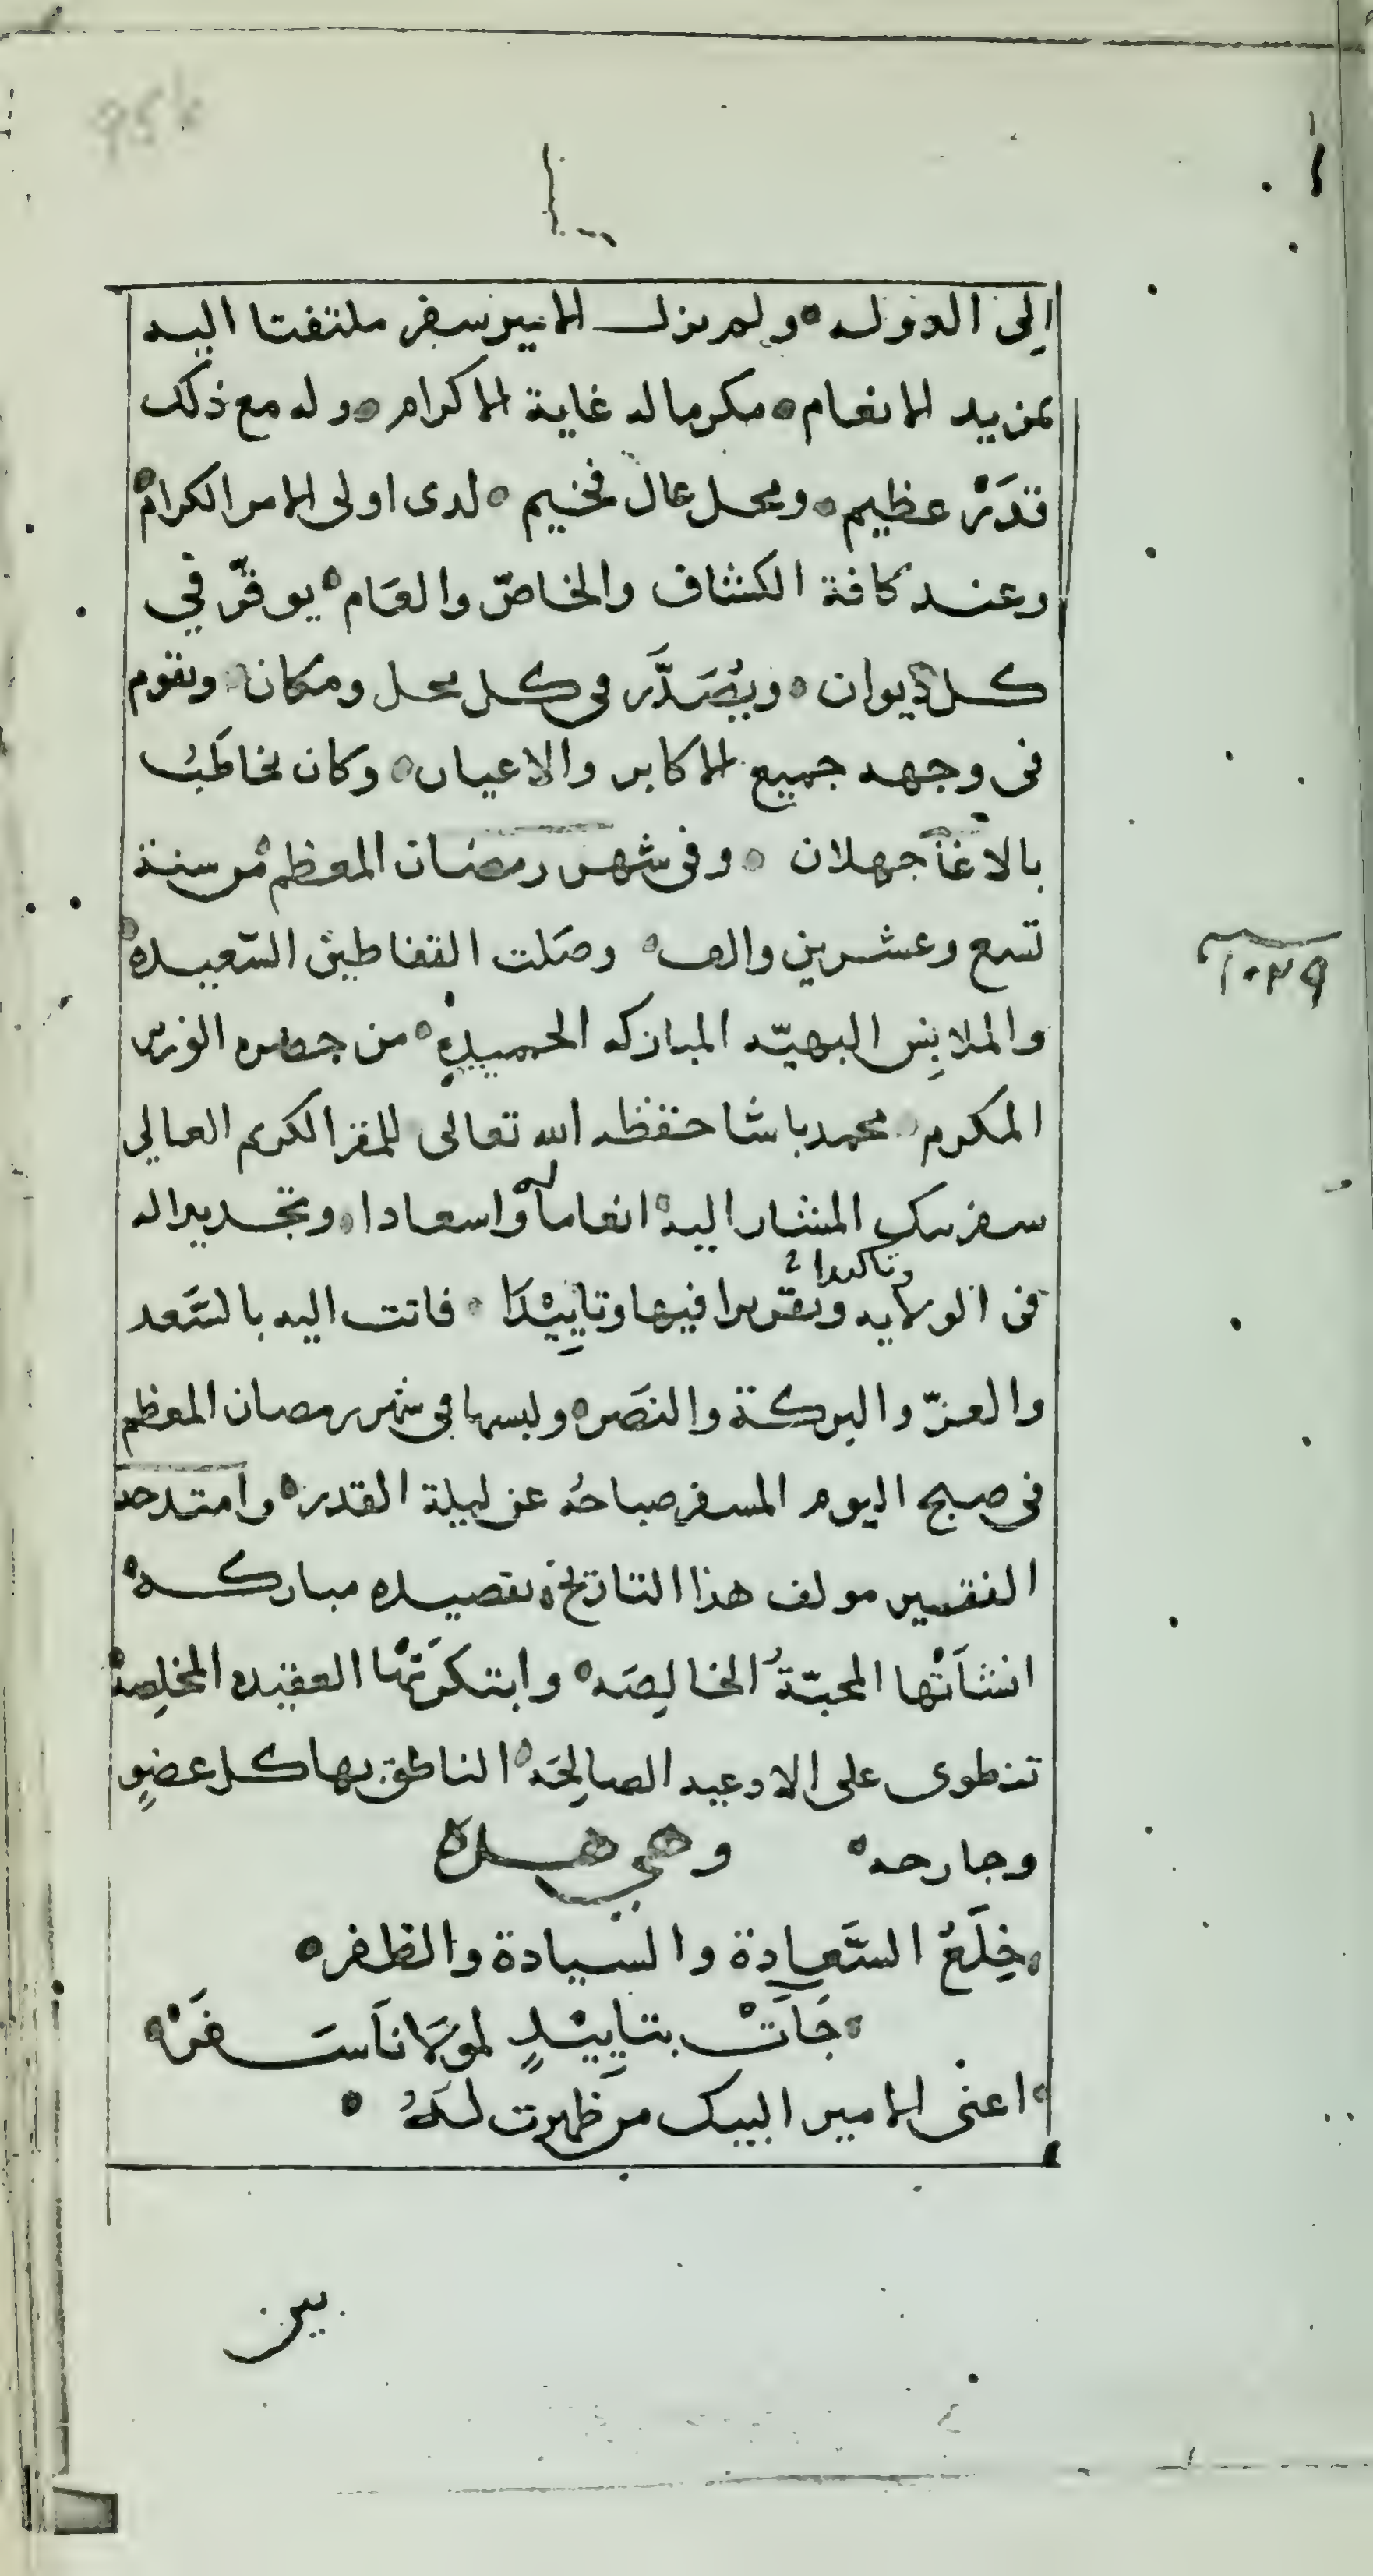 الى الدوله ولم يزل الامير سفر ملتفتا اليه
بمزيد الانعام مكرما له غاية الاكرام وله مع ذلك
قدَرٌ عظيم ومحل عال فخيم لدى اولى الامر الكرام
وعند كافة الكشاف والخاصّ والعَام يوقرّ في
كل ديوان ويُصَدَّر فى كل محل ومكان ويقوم
فى وجهه جميع الاكابر والاعيان وكان يخاطَبُ
بالاغا جهلان وفى شهر رمضان المعظم من سنة
تسع وعشرين والف وصَلت القفاطين السّعيده
١٠٢٩
والملابِس البهيّه المباركه الحميده من حضره الوزير
المكرم محمد باشا حفظه الله تعالى للمقر الكريم العالي
سفر بيك المشار اليه انعاما له واسعادا وتجديدا له
فى الولايه وتقريرا وتاكيدا فيها وتاييْدَا فاتت اليه بالسَّعد
والعزّ والبركة والنصَره ولبسها فى شهر رمضان المعظم
فى صبح اليوم المسفر صباحُه عن ليلة القدر وامتدحه
الفقير مولف هذا التاريخ بقصيده مباركه
انشاَتْها المحبّةُ الخالِصَه وابتكرَتْها العقيده المخلِصه
تنطوى على الادعيه الصالِحَه الناطق بها كل عضوٍ
وجارحه وهي هذه
خِلَعُ السَّعادة والسيادة والظفر
جَاَتْ بتاييْدٍ لموَلانا سَفَرْ
اعنى الامير البيك من ظهرت لَهُ
بين